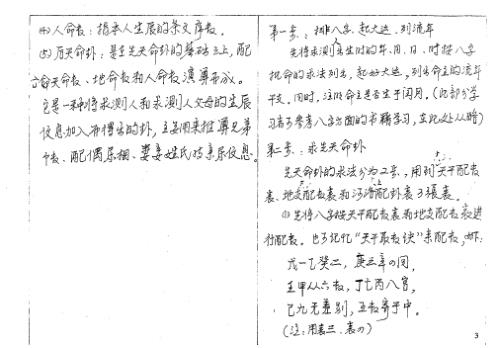 (4) 人命数：指本人生辰的条文序数。
(5) 历天命卦：是在先天命卦的基础之上，配
合天命数、地命数和人命数演算而成。
它是一种将求测人和求测人父母的生辰
信息加入而得出的卦，主要用来推算兄弟
个数、配偶属相、妻妾姓氏等亲属信息。
第一步：排八字、起大运、列流年
先将求测者出生时的年、月、日、时按八字
批命的求法列出，起好大运，列出命主的流年
干支。同时，注明命主是否生于闰月。（此部分学
习者可参考八字方面的书籍学习，在此处从略）
第二步：求先天命卦
先天命卦的求法分为2步，用到天干配数
表、地支配数表和河洛配卦表3张表。
(1) 先将八字按天干配数表和地支配数表进
行配数。也可记忆“天干取数诀”来配数，即：
戊一乙癸二，庚三辛四同，
壬甲从六数，丁七丙八宫，
己九无差别，五数寄于中。
(注：用表三、表四)
3